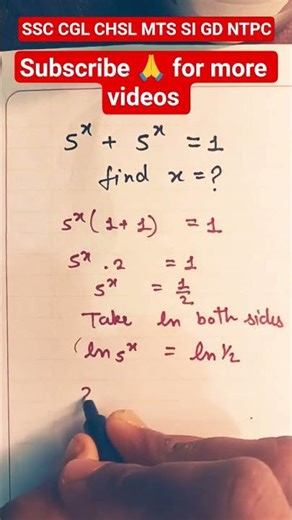 SSC CGL CHSL MTS SI GD NTPC
Subscribe 🙏 for more
videos
5^x + 5^x = 1
find x = ?
5^x (1+1) = 1
5^x . 2 = 1
5^x = 1/2
Take ln both sides
(ln 5^x = ln 1/2